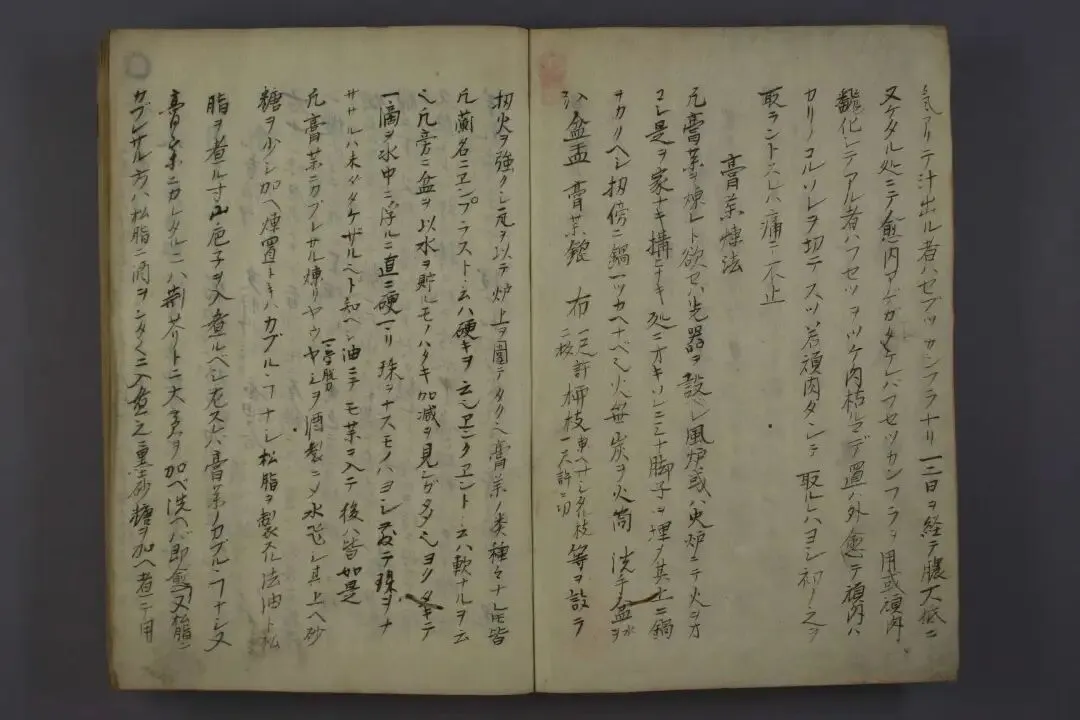 気アリテ汁出ル者ハセブツカンフラナリ一二日ヲ経テ膿大低ニ
又ケタル処ニテ愈内アデガタケレバフセツカンフラヲ用或頑肉
齔化シテアル者ハフセツヲツケ内枯ルマデ置ハ外愈テ頑肉ハ
カリノコルソレヲ切テスツ若頑肉ダンニ取ルハヨシ初ノ之ヲ
取ラントスレハ痛ニ不止
膏薬煉法
凡膏薬ヲ煉ント欲セハ先器ヲ設ベシ風炉或ハ火炉ニテ火ヲオ
コシ是ヲ家ナキ構ニナキ処ニオキソレニ三十脚子ヲ埋メ其上ニ鍋
ヲカクヘシ扨傍ニ鍋一ツカヘナベシ火無炭ヲ火筒 洗手盆ヲ水
入 盆盂 膏薬鎗 布一尺許二枚 柳枝東ヘナシタル枝一尺許ニ切 等ヲ設ラ
扨火ヲ強クシ瓦ヲ以テ炉上ヲ圍テタクヘシ膏薬ノ类種々ナレ𪜈皆
凡蘭名ニヱンプラストト云ハ硬キヲ云シヱンクヱントト云ハ軟ナルヲ云
シ凡膏ニ盆ヲ以水ヲ貯ルモノハタキ加減ヲ見シガタメシヨクタキテ
一滴ヲ水中ニ浮ルニ直ニ硬一リ珠ヲナスモノハヨシ散テ珠ヲナ
ササルハ未ダタケザルヘト知ヘシ油ニテモ薬ヲ入テ後ハ皆如是
凡膏薬ニカブレサル煉リヤウヤシヲ酒製ニメ水飛シ其上ヘ砂
糖ヲ少シ加ヘ煉置トキハカブルヽフナシ松脂ヲ製スル法油ト松
脂ヲ煮ル寸山巵子ヲ入煮ルベシ左スレハ膏薬ノカブルヽフナシ又
膏薬ニカレタルニハ荊芥ト二大黄ヲ加ヘ洗ヘハ即愈又松脂ニ
カブレサル方ハ松脂ニ酒ヲシタタニ入煮之薫上砂糖ヲ加ヘ者ニテ用